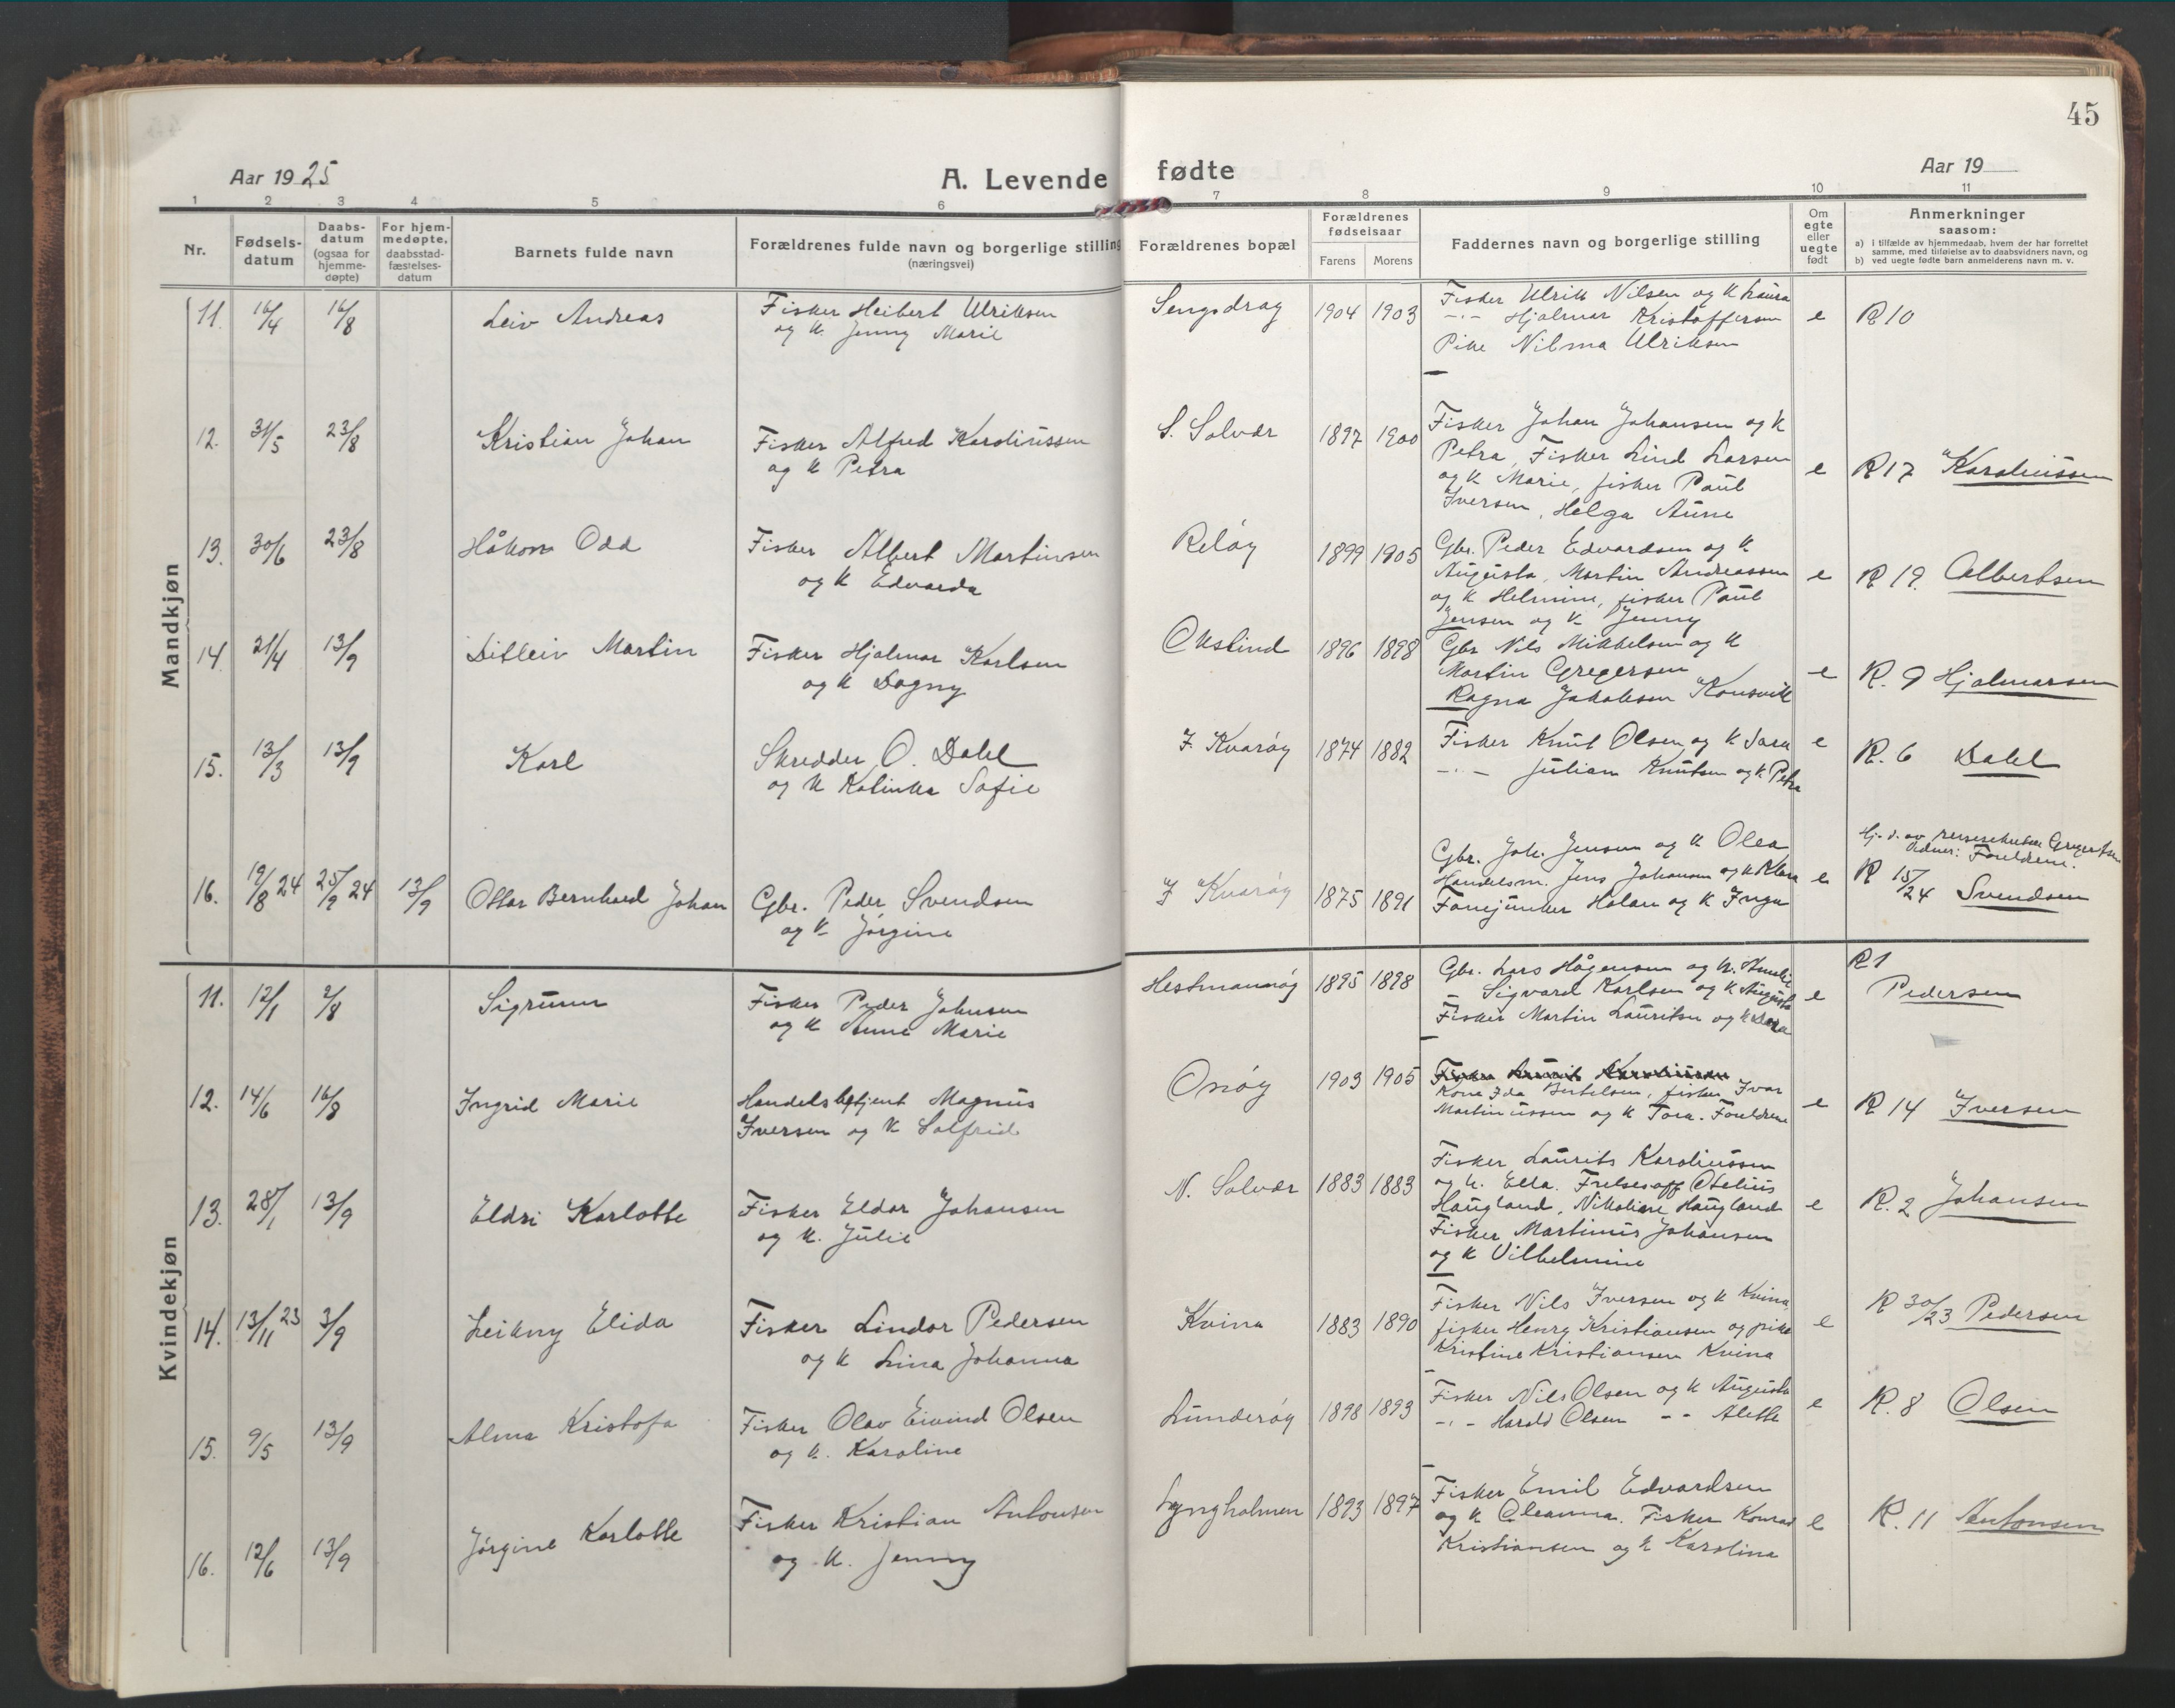 45
Aar 1925
A. Levende fødte
Aar 19
1 2 3 4 5 6 7 8 9 10 11
Nr.
Fødsels-datum
Daabs-datum (ogsaa for hjemme-døpte)
For hjem-medøpte, daabsstad-fæstelses-datum
Barnets fulde navn
Forældrenes fulde navn og borgerlige stilling (næringsvei)
Forældrenes bopæl
Forældrenes fødselsaar
Farens Morens
Faddernes navn og borgerlige stilling
Om egte eller uegte født
Anmerkninger saasom:
a) i tilfælde av hjemmedaab, hvem der har forrettet samme, med tilføielse av to daabsvidners navn, og
b) ved uegte fødte barn anmelderens navn m. v.
Mandkjøn
11. 16/4 16/8 Leiv Andreas
Fisker Heibert Ulriksen
og k. Jenny Marie
Sengsdrag 1904 1903
Fisker Ulrik Nilsen og k Laura
-"- Hjalmar Kristoffersen
Pike Nilma Ulriksen
e R 10
12. 31/5 23/8 Kristian Johan
Fisker Alfred Karoliussen
og k Petra
S. Solvær 1897 1900
Fisker Johan Johansen og k
Petra, Fisker Lind Larsen
og k Marie, fisker Paul
Iversen, Helga Aune
e R 17 Karoliussen
13. 30/6 23/8 Håkon Odd
Fisker Albert Martinsen
og k Edvarda
Reløy 1899 1905
Gbr. Peder Edvardsen og k
Augusta, Martin Andreassen
og k Helmine, fisker Paul
Jensen og k Jenny
e R 19. Albertsen
14. 21/4 13/9 Ditleiv Martin
Fisker Hjalmar Karlsen
og k Dagny
Okstind 1896 1898
Gbr Nils Mikkelsen og k
Martin Gregersen
Ragna Jakobsen Konsvik
e R. 9 Hjalmarsen
15. 13/3 13/9 Karl
Skredder O. Dahl
og k Kalinka Sofie
I. Kvarøy 1874 1882
Fisker Knut Olsen og k Sara
-"- Julian Knutsen og k. Petra
e R. 6 Dahl
16. 19/8 24 25/9 24 13/9 Ottar Bernhard Johan
Gbr. Peder Svendsen
og k Jørgine
I Kvarøy 1875 1891
Gbr. Joh. Jensen og k Olea
Handelsm. Jens Johansen og k Klara
Fanejunker Holan og k Inga
e
Hj. d. av Gregersen
Vidner: Foreldrene.
R 15/24 Svendsen
Kvindekjøn
11. 12/1 2/8 Sigrunn
Fisker Peder Johnsen
og k Anne Marie
Hestmannøy 1895 1898
Gbr. Lars Hågensen og k. Amalie
Sigvard Karlsen og k Augusta
Fisker Martin Lauritsen og k Dora
e R 1
Pedersen
12. 14/6 16/8 Ingrid Marie
Handelsbetjent Magnus
Iversen og k Solfrid
Onøy 1903 1905
Kone Ida Bertelsen, fisker Ivar
Martinussen og k Tora. Foreldrene
e R 14 Iversen
13. 28/1 13/9 Eldri Karlotte
Fisker Eldor Johansen
og k. Julie
N. Solvær 1883 1883
Fisker Laurits Karoliussen
og k. Ella. Frelsesoff Otelius
Haugland, Nikoline Haugland
Fisker Martinus Johansen
og k Vilhelmine
e R. 2 Johansen
14. 13/11 23 3/9 Leikny Elida
Fisker Lindor Pedersen
og k Lina Johanna
Kvina 1883 1890
Fisker Nils Iversen og k Kvina,
fisker Henry Kristiansen og pike
Kristine Kristiansen Kvina
e R 30/23 Pedersen
15. 9/5 13/9 Alma Kristofa
Fisker Olav Eivind Olsen
og k. Karoline
Lunderøy 1898 1893
Fisker Nils Olsen og k Augusta
-"- Harald Olsen -"- Alette
e R. 8 Olsen
16. 12/6 13/9 Jørgine Karlotte
Fisker Kristian Antonsen
og k. Jenny
Lyngholmen 1893 1897
Fisker Emil Edvardsen
og k Oleanna. Fisker Konrad
Kristiansen og k Karolina
e R. 11 Antonsen